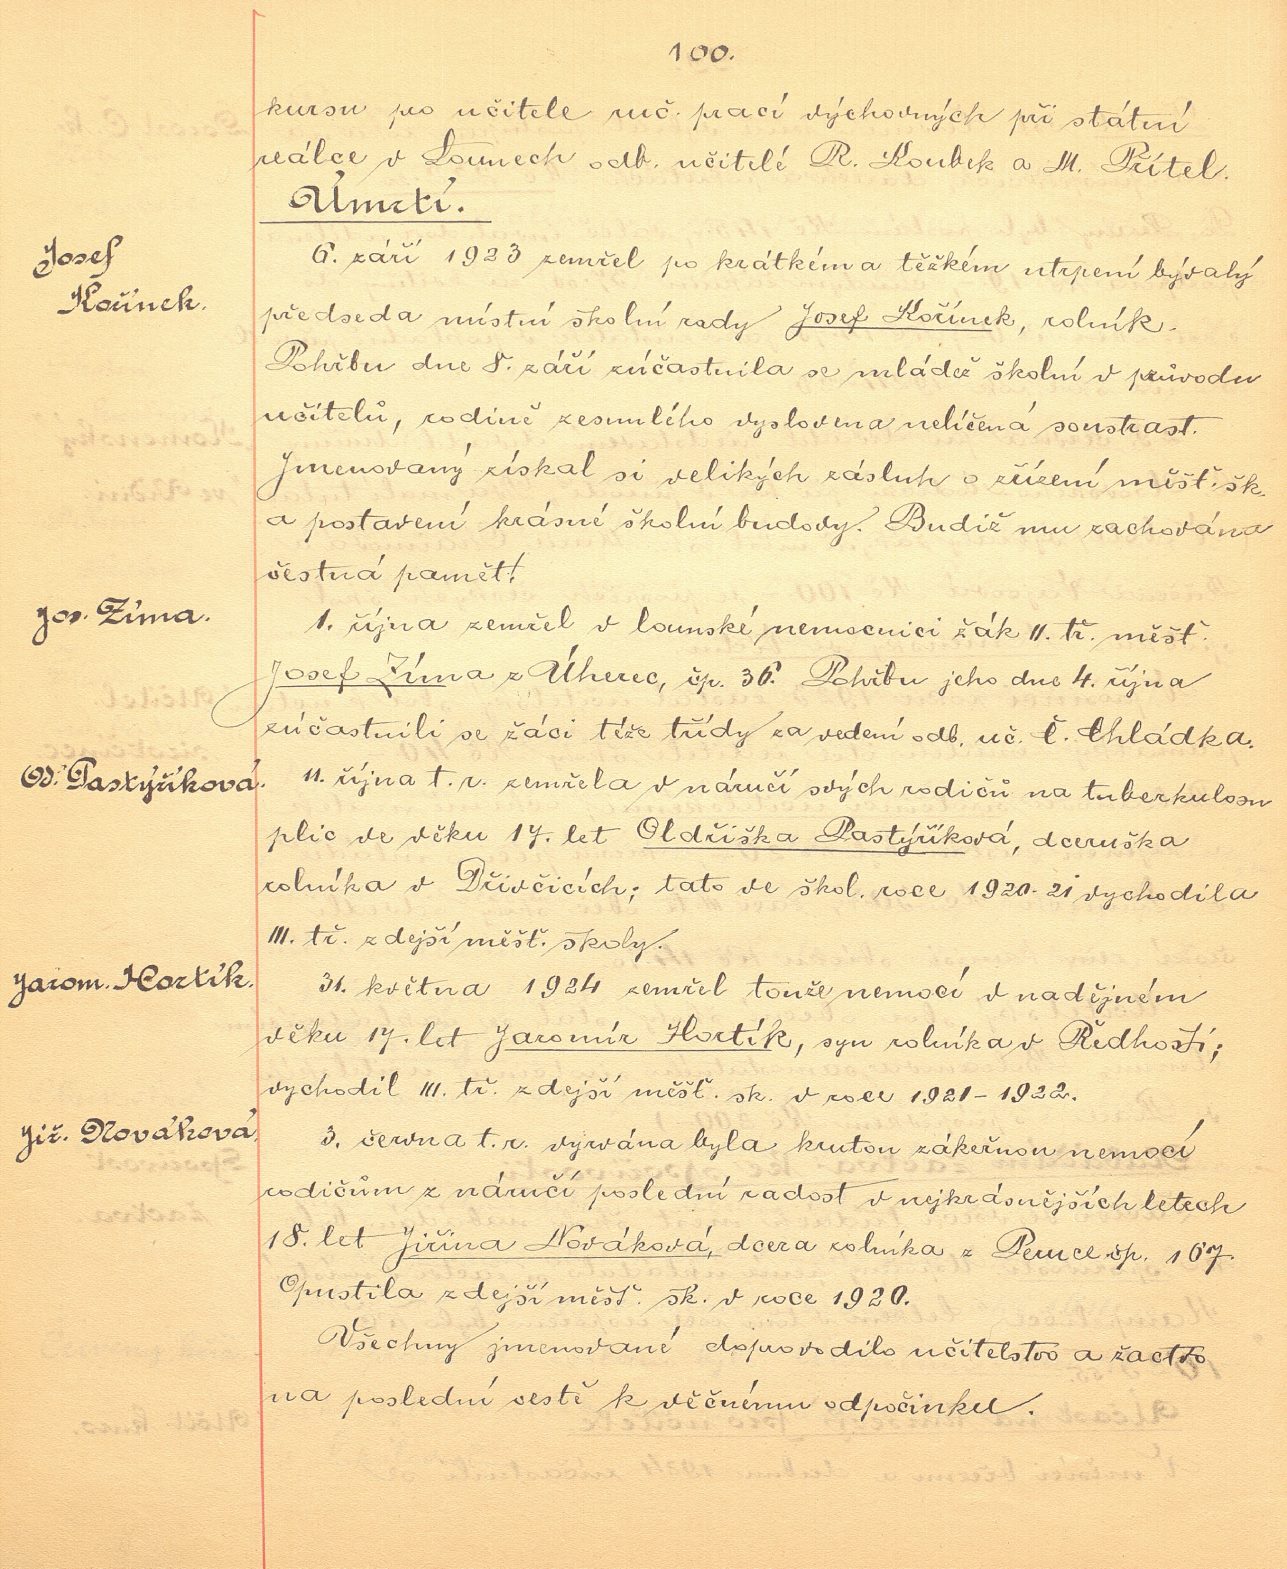 100.
kursu pro učitele ruč. prací výchovných při státní
reálce v Lounech odb. učitelé R. Koubek a M. Přítel.
Úmrtí.
Josef
Kořínek.
6. září 1923 zemřel po krátkém a těžkém utrpení bývalý
předseda místní školní rady Josef Kořínek, rolník.
Pohřbu dne 8. září zúčastnila se mládež školní v průvodu
učitelů, rodině zesnulého vyslovena nelíčená soustrast.
Jmenovaný získal si velikých zásluh o zřízení měšť. šk.
a postavení krásné školní budovy. Budiž mu zachována
čestná paměť!
Jos. Zíma.
1. října zemřel v lounské nemocnici žák II. tř. měšť.
Josef Zíma z Úherec, čp. 36. Pohřbu jeho dne 4. října
zúčastnili se žáci téže třídy za vedení odb. uč. Č. Chládka.
Ol. Pastýříková.
11. října t. r. zemřela v náručí svých rodičů na tuberkulosu
plic ve věku 17. let Oldřiška Pastýříková, dceruška
rolníka v Dřívčicích; tato ve škol. roce 1920-21 vychodila
III. tř. zdejší měšť. školy.
Jarom. Hortík.
31. května 1924 zemřel touže nemocí v nadějném
věku 17. let Jaromír Hortík, syn rolníka v Ředhošti;
vychodil III. tř. zdejší měšť. šk. v roce 1921-1922.
Jiř. Nováková.
3. června t. r. vyrvána byla krutou zákeřnou nemocí
rodičům z náručí poslední radost v nejkrásnějších letech
18. let Jiřina Nováková, dcera rolníka z Peruce čp. 167.
Opustila zdejší měšť. šk. v roce 1920.
Všechny jmenované doprovodilo učitelstvo a žactvo
na poslední cestě k věčnému odpočinku.